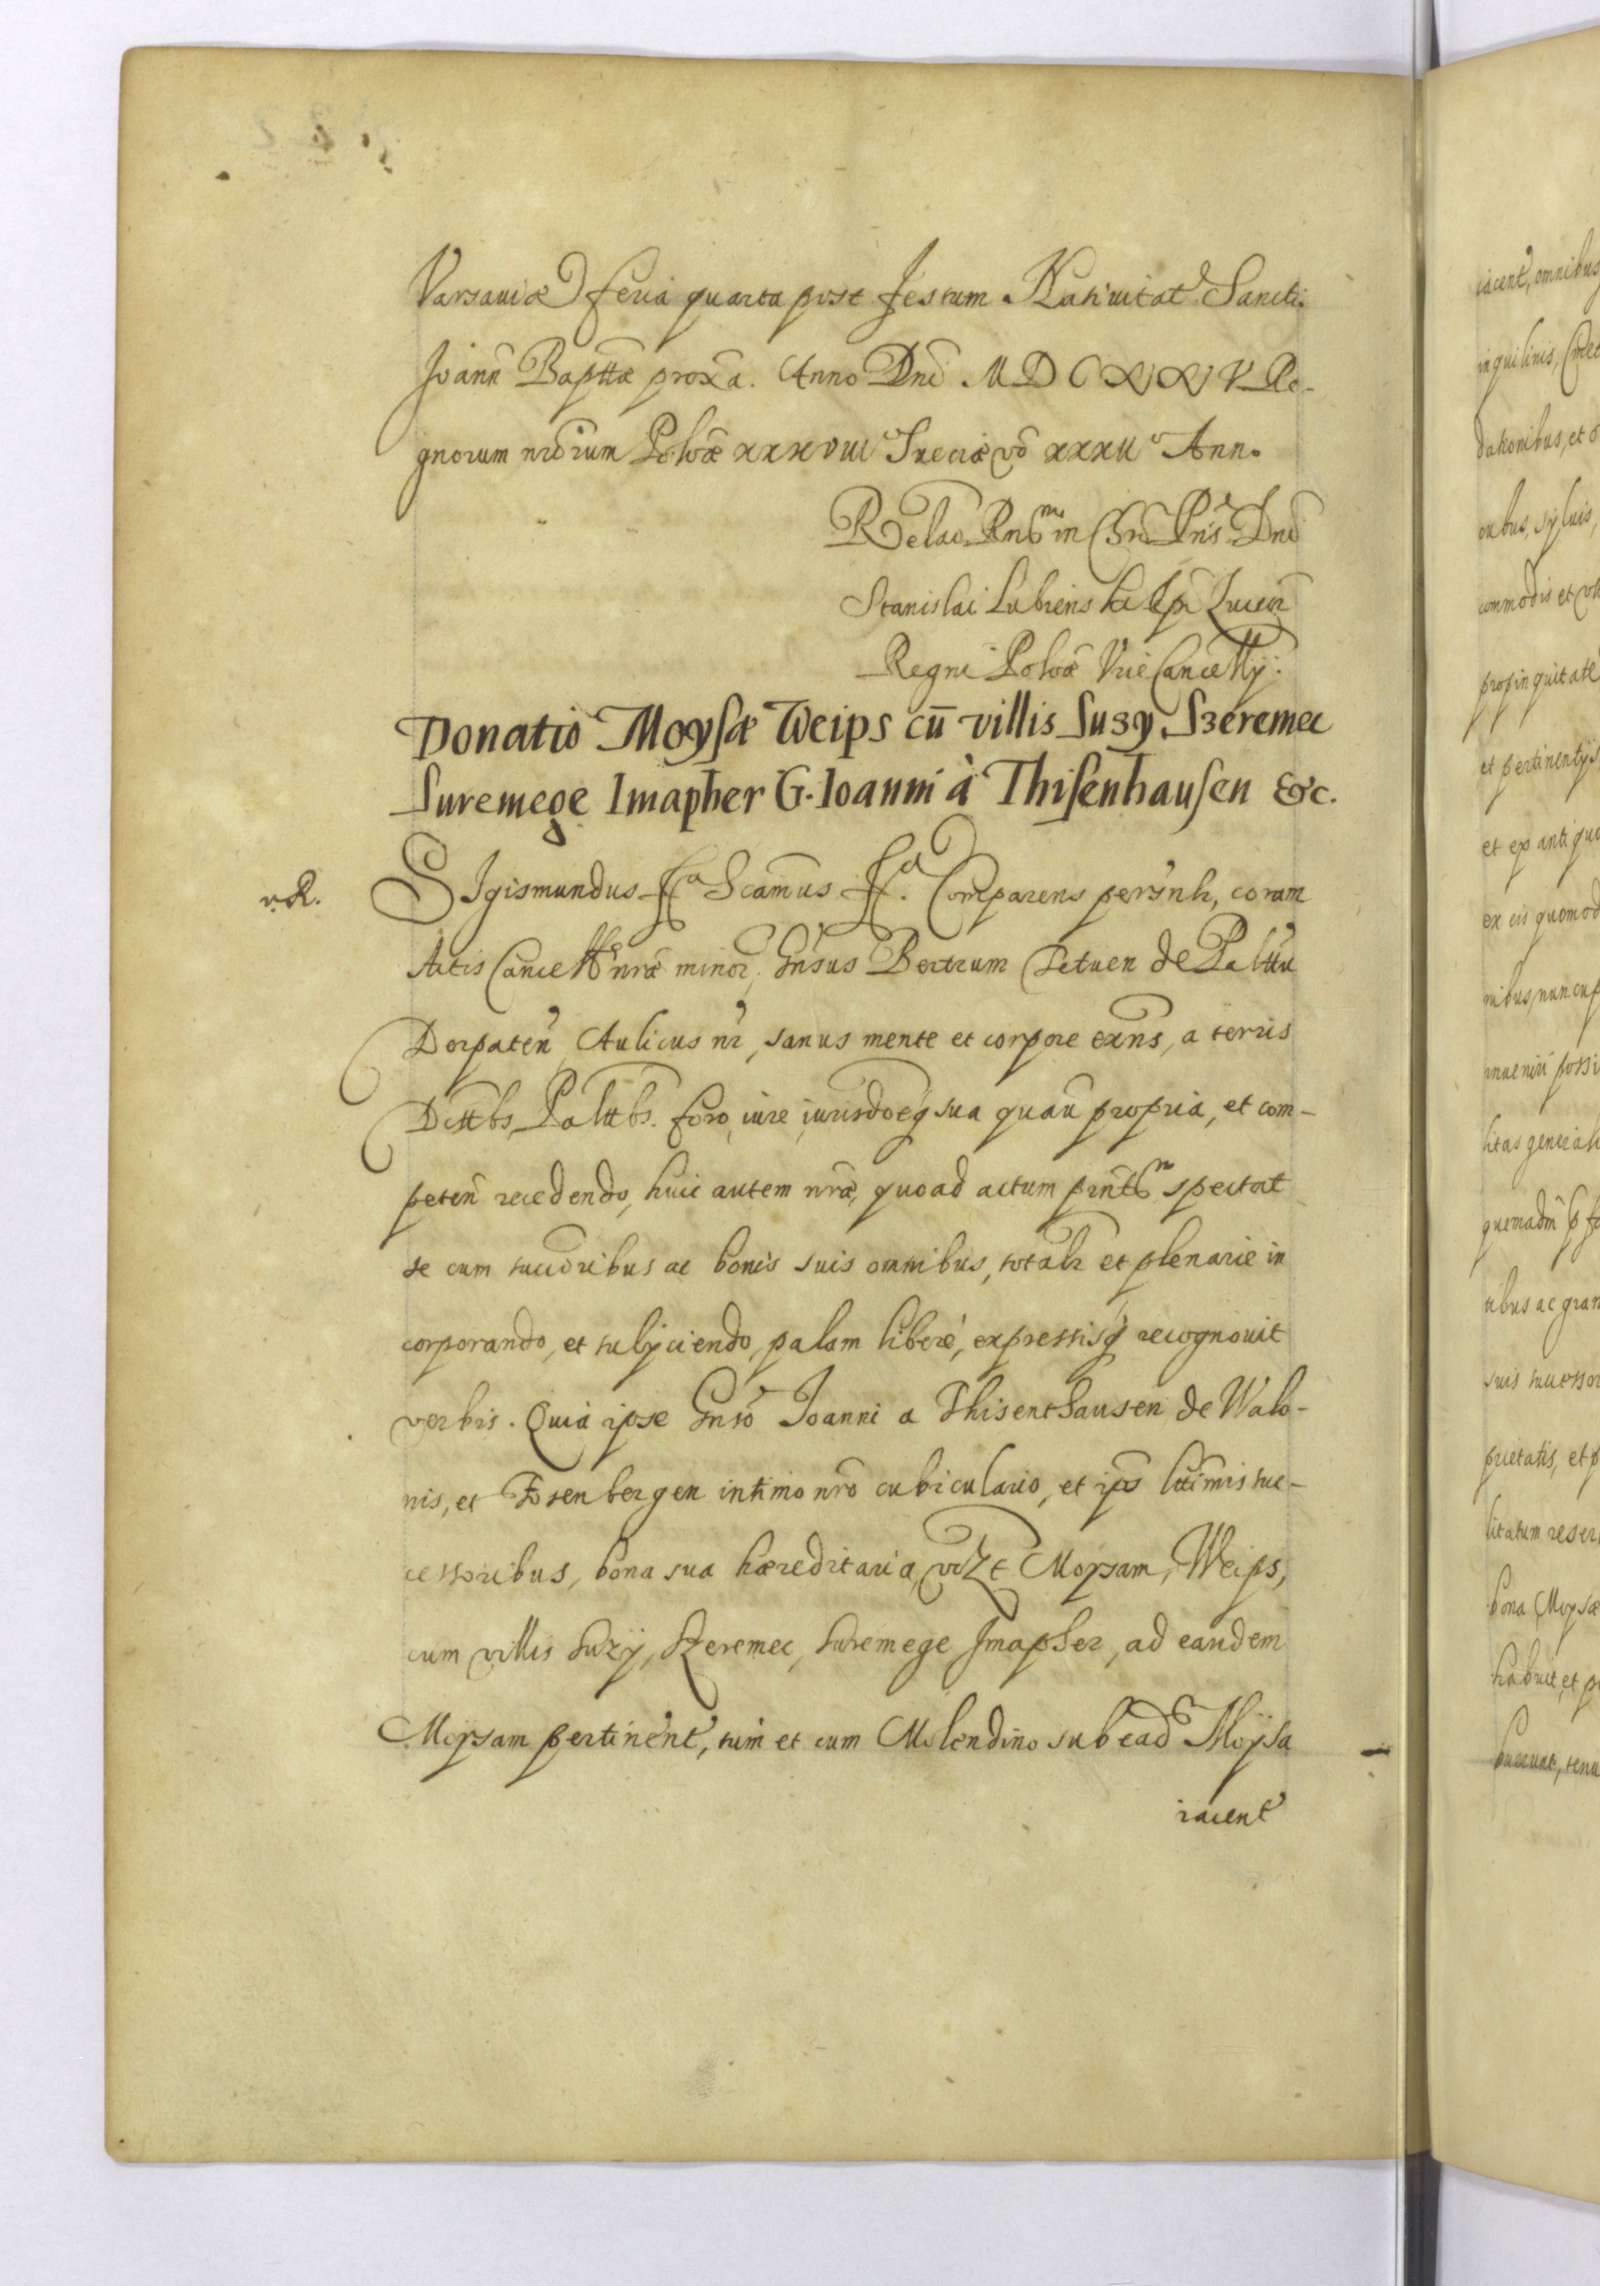 Varsaviæ feria quarta post festum Nativitat Sancti
Joañ Bapttæ proxa. Anno Dni M D C X X V Re-
gnorum nrorum Poloæ xxxviii Sueciæ vo xxxii Anno
Relao Rndmi in Chro Pris Dni
Stanislai Lubienski Epi Luceor
Regni Poloæ Vice Cancellÿ.
Donatio Moysæ Weips cū villis Suzy Szeremec
Suremege Imapher G. Ioanni à Thisenhausen &c.
v.R.
SIgismundus Scamus Comparens persnlr, coram
Actis Cancell nræ minor, Gnsus Bertrum de Palttu
Dorpaten, Aulicus nr, sanus mente et corpore exns, a terris
Disttbs, Palttbs. foro, iure, iurisdoeq sua quau propria, et com-
peten recedendo, huic autem nræ, quoad actum pñtem spectat
se cum succoribus ac bonis suis omnibus, totalr et plenarie in
corporando, et subijciendo, palam liberè, expressisq recognovit
verbis. Quia ipse Gnso Joanni a Thisenhausen de Walo-
nis, et Fosenbergen intimo nro cubiculario, et ips lttimis suc-
cessoribus, bona sua hæreditaria, vizt Moysam, Weips,
cum villis Suzÿ, Szeremec, Suremege Imapher, ad eandem
Moysam pertinent, tum et cum Molendino sub ead Moysa
iacent
iacent, omnibus
inquilinis, Cmet
dationibus, et
commodis et
propinquitate
et pertinentijs
et ex antiquo
ex eis quomod
nibus, nuncup
inveniri possi
litas general
quemadm p
tibus ac gran
suis successor
prietatis, et p
litatum reser
bona Moysæ
habuit, et p
buerunt, tenu